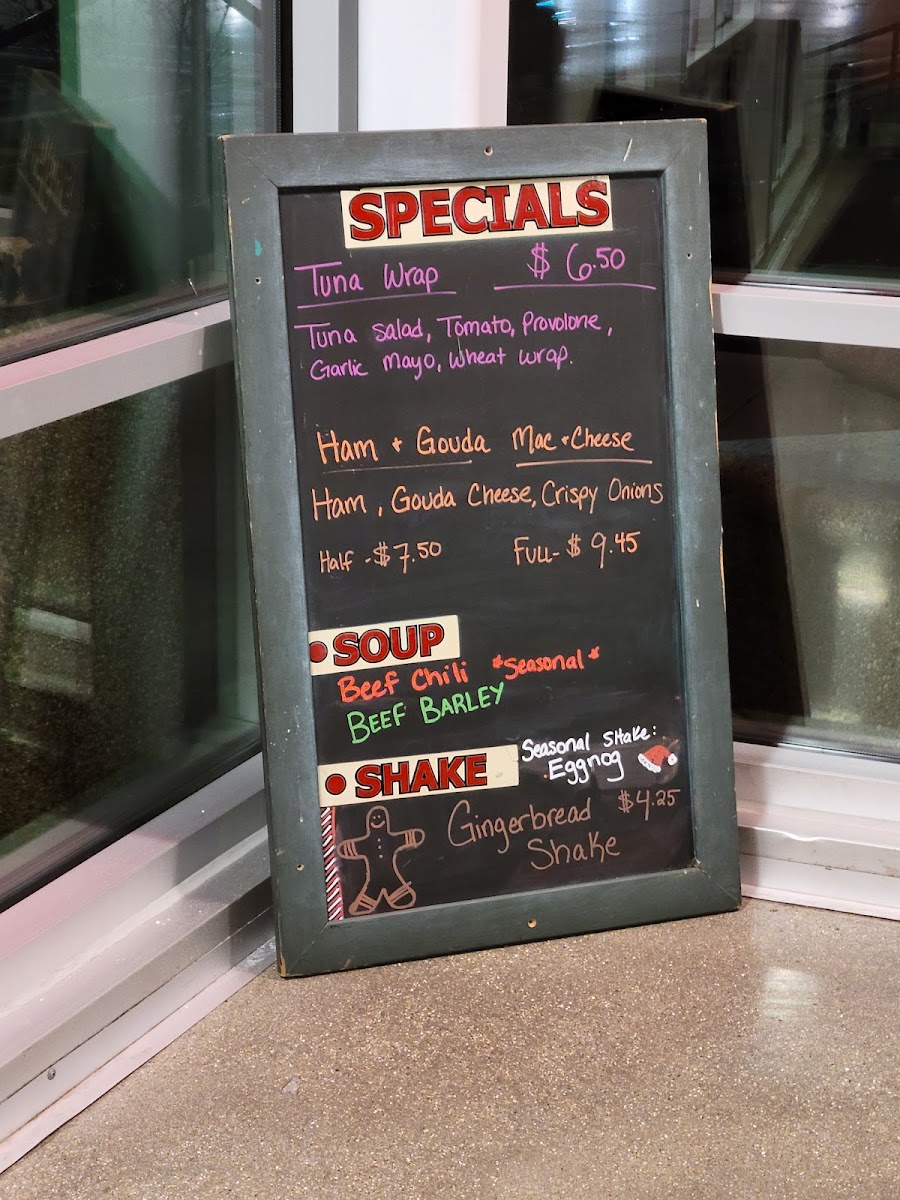 SPECIALS
Tuna Wrap $6.50
Tuna salad, Tomato, Provolone,
Garlic mayo, wheat wrap.
Ham + Gouda Mac + Cheese
Ham, Gouda Cheese, Crispy Onions
Half - $7.50 Full - $9.45
• SOUP
Beef Chili *Seasonal*
BEEF BARLEY
Seasonal Shake:
Eggnog
• SHAKE
Gingerbread $4.25
Shake